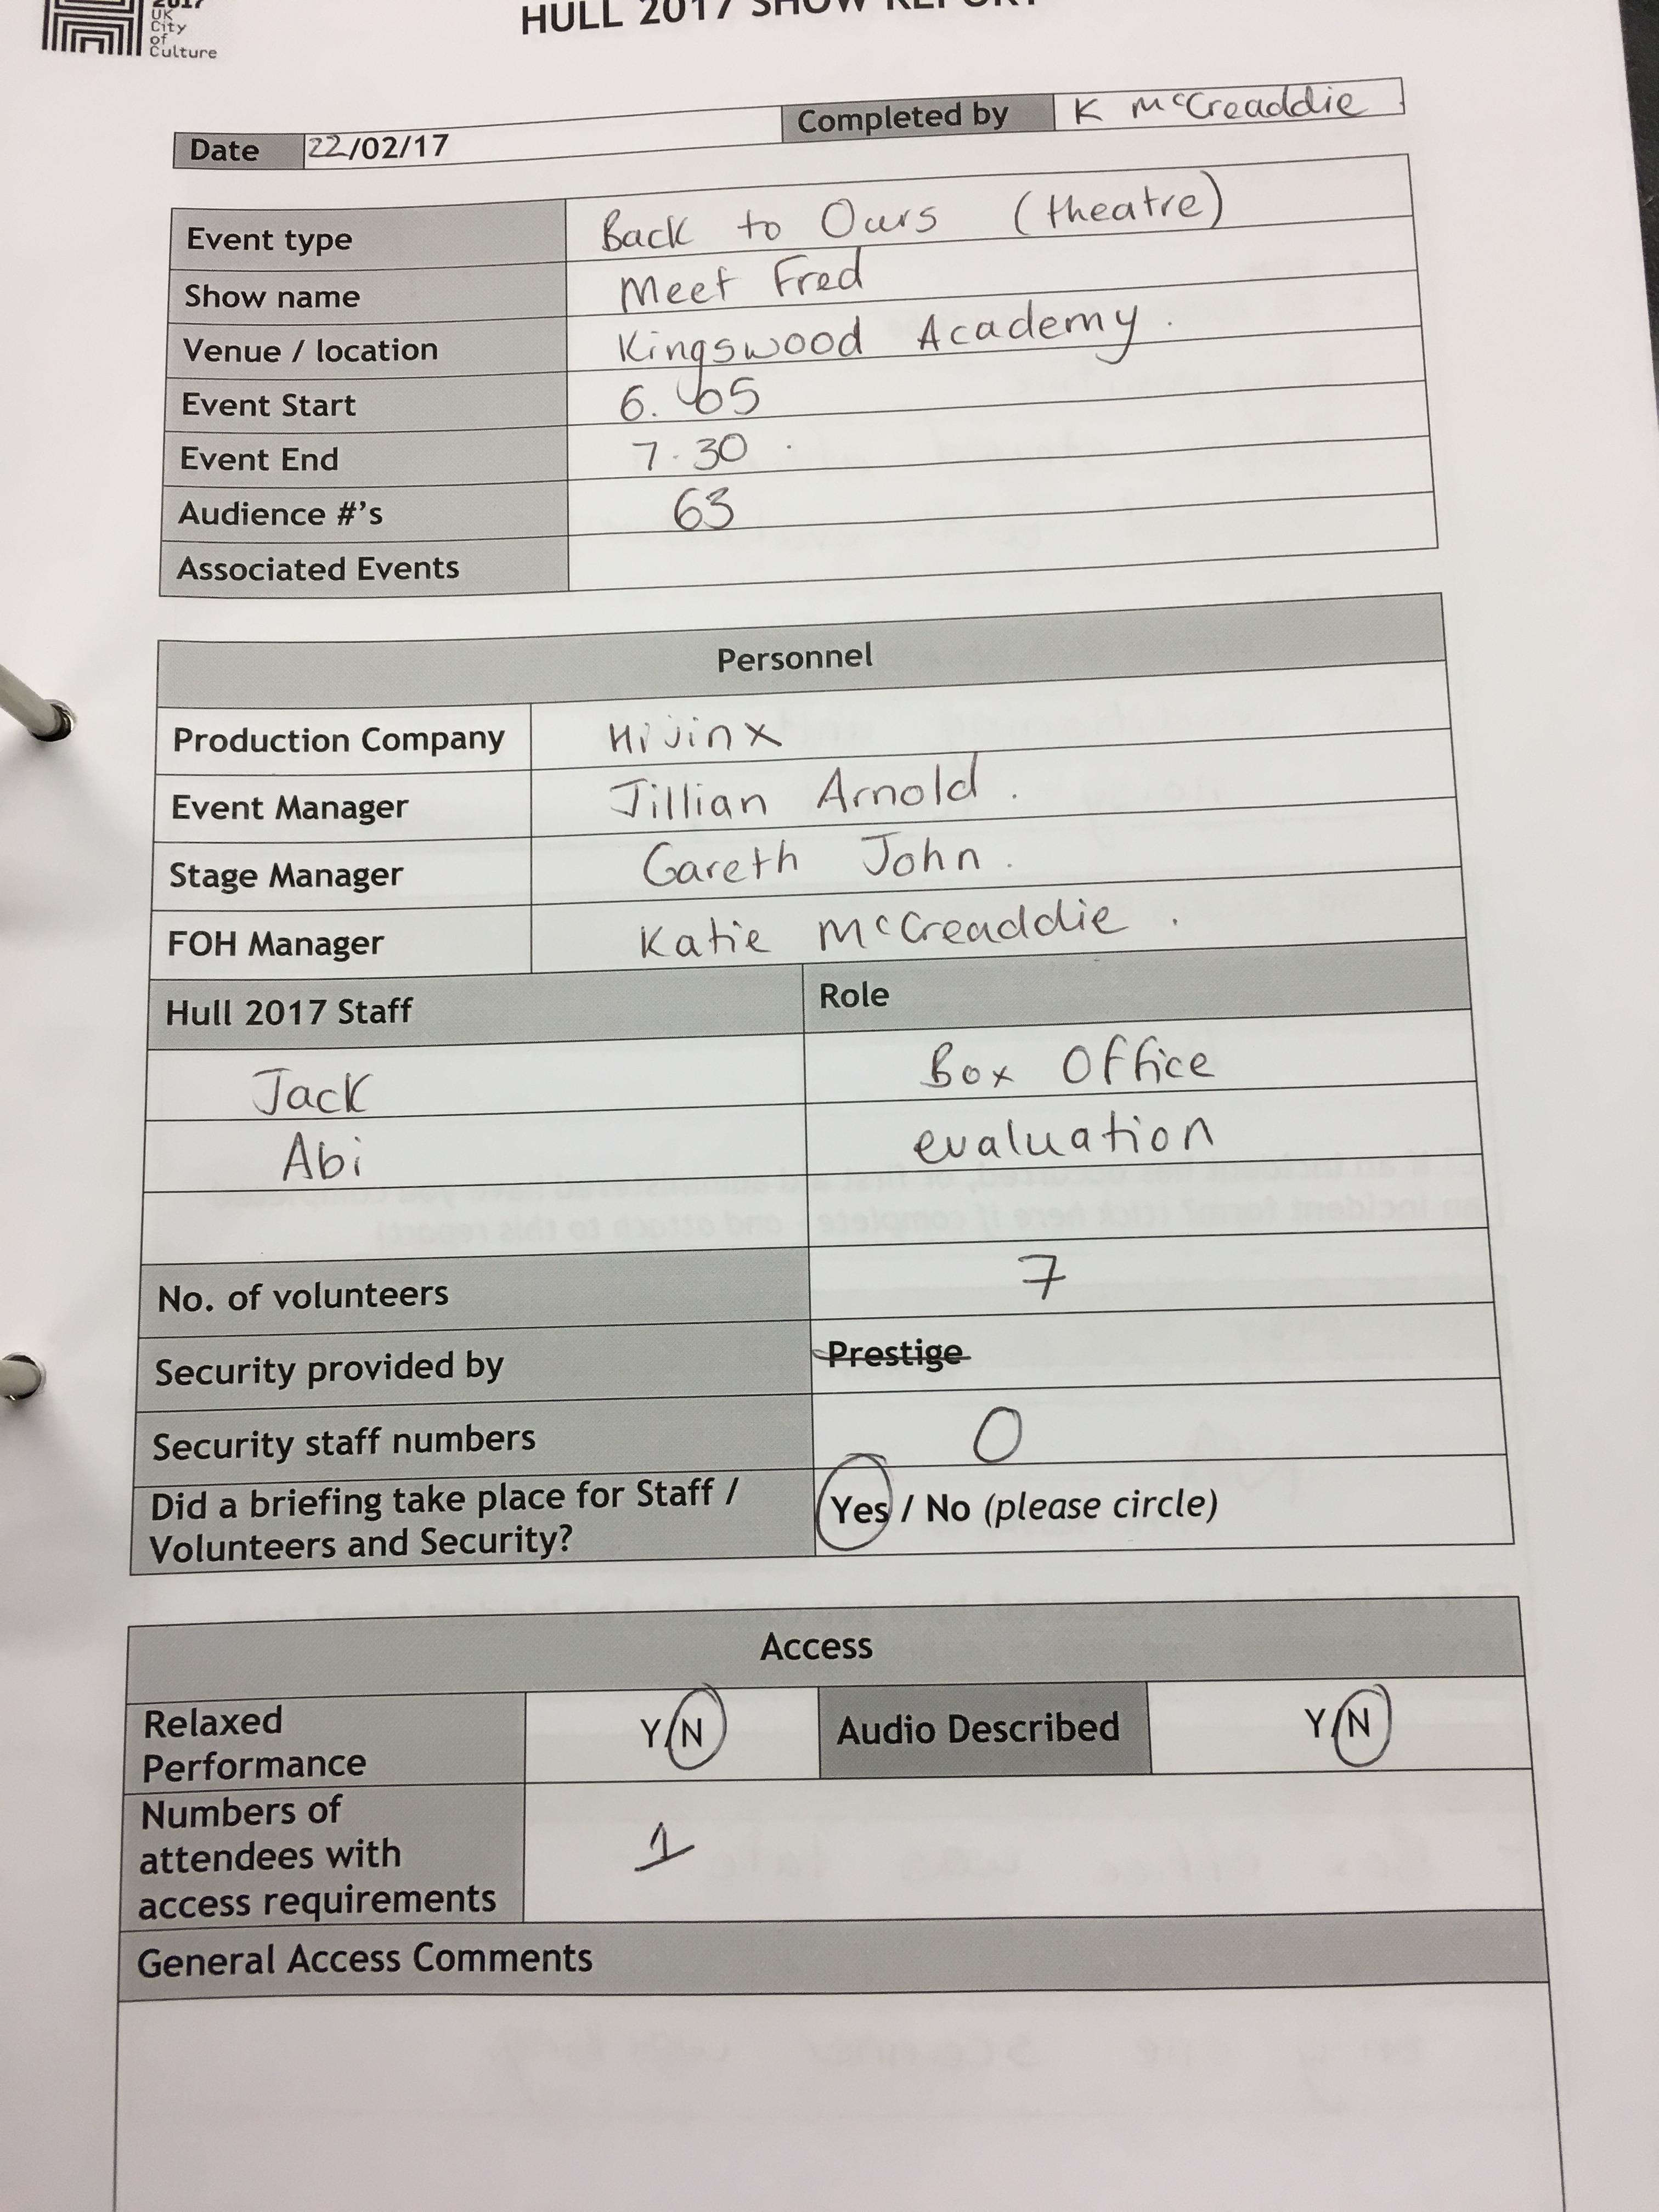 2017
UK
City
of
Culture
HULL 2017 SHOW REPORT
Date 22/02/17 Completed by K McCreaddie
Event type Back to Ours (theatre)
Show name Meet Fred
Venue / location Kingswood Academy.
Event Start 6.
Event End 7.30
Audience #'s 63
Associated Events
Personnel
Production Company Hijinx
Event Manager Jillian Arnold.
Stage Manager Gareth John.
FOH Manager Katie McCreaddie.
Hull 2017 Staff Role
Jack Box Office
Abi evaluation
No. of volunteers 7
Security provided by Prestige
Security staff numbers 0
Did a briefing take place for Staff / Yes / No (please circle)
Volunteers and Security?
Access
Relaxed Y/N Audio Described Y/N
Performance
Numbers of
attendees with 1
access requirements
General Access Comments